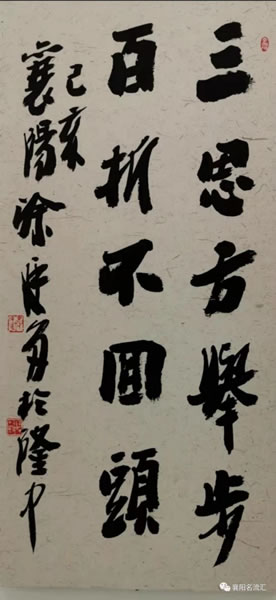 三思方舉步
百折不回頭
己亥
襄陽徐
於隆中
襄阳名流汇